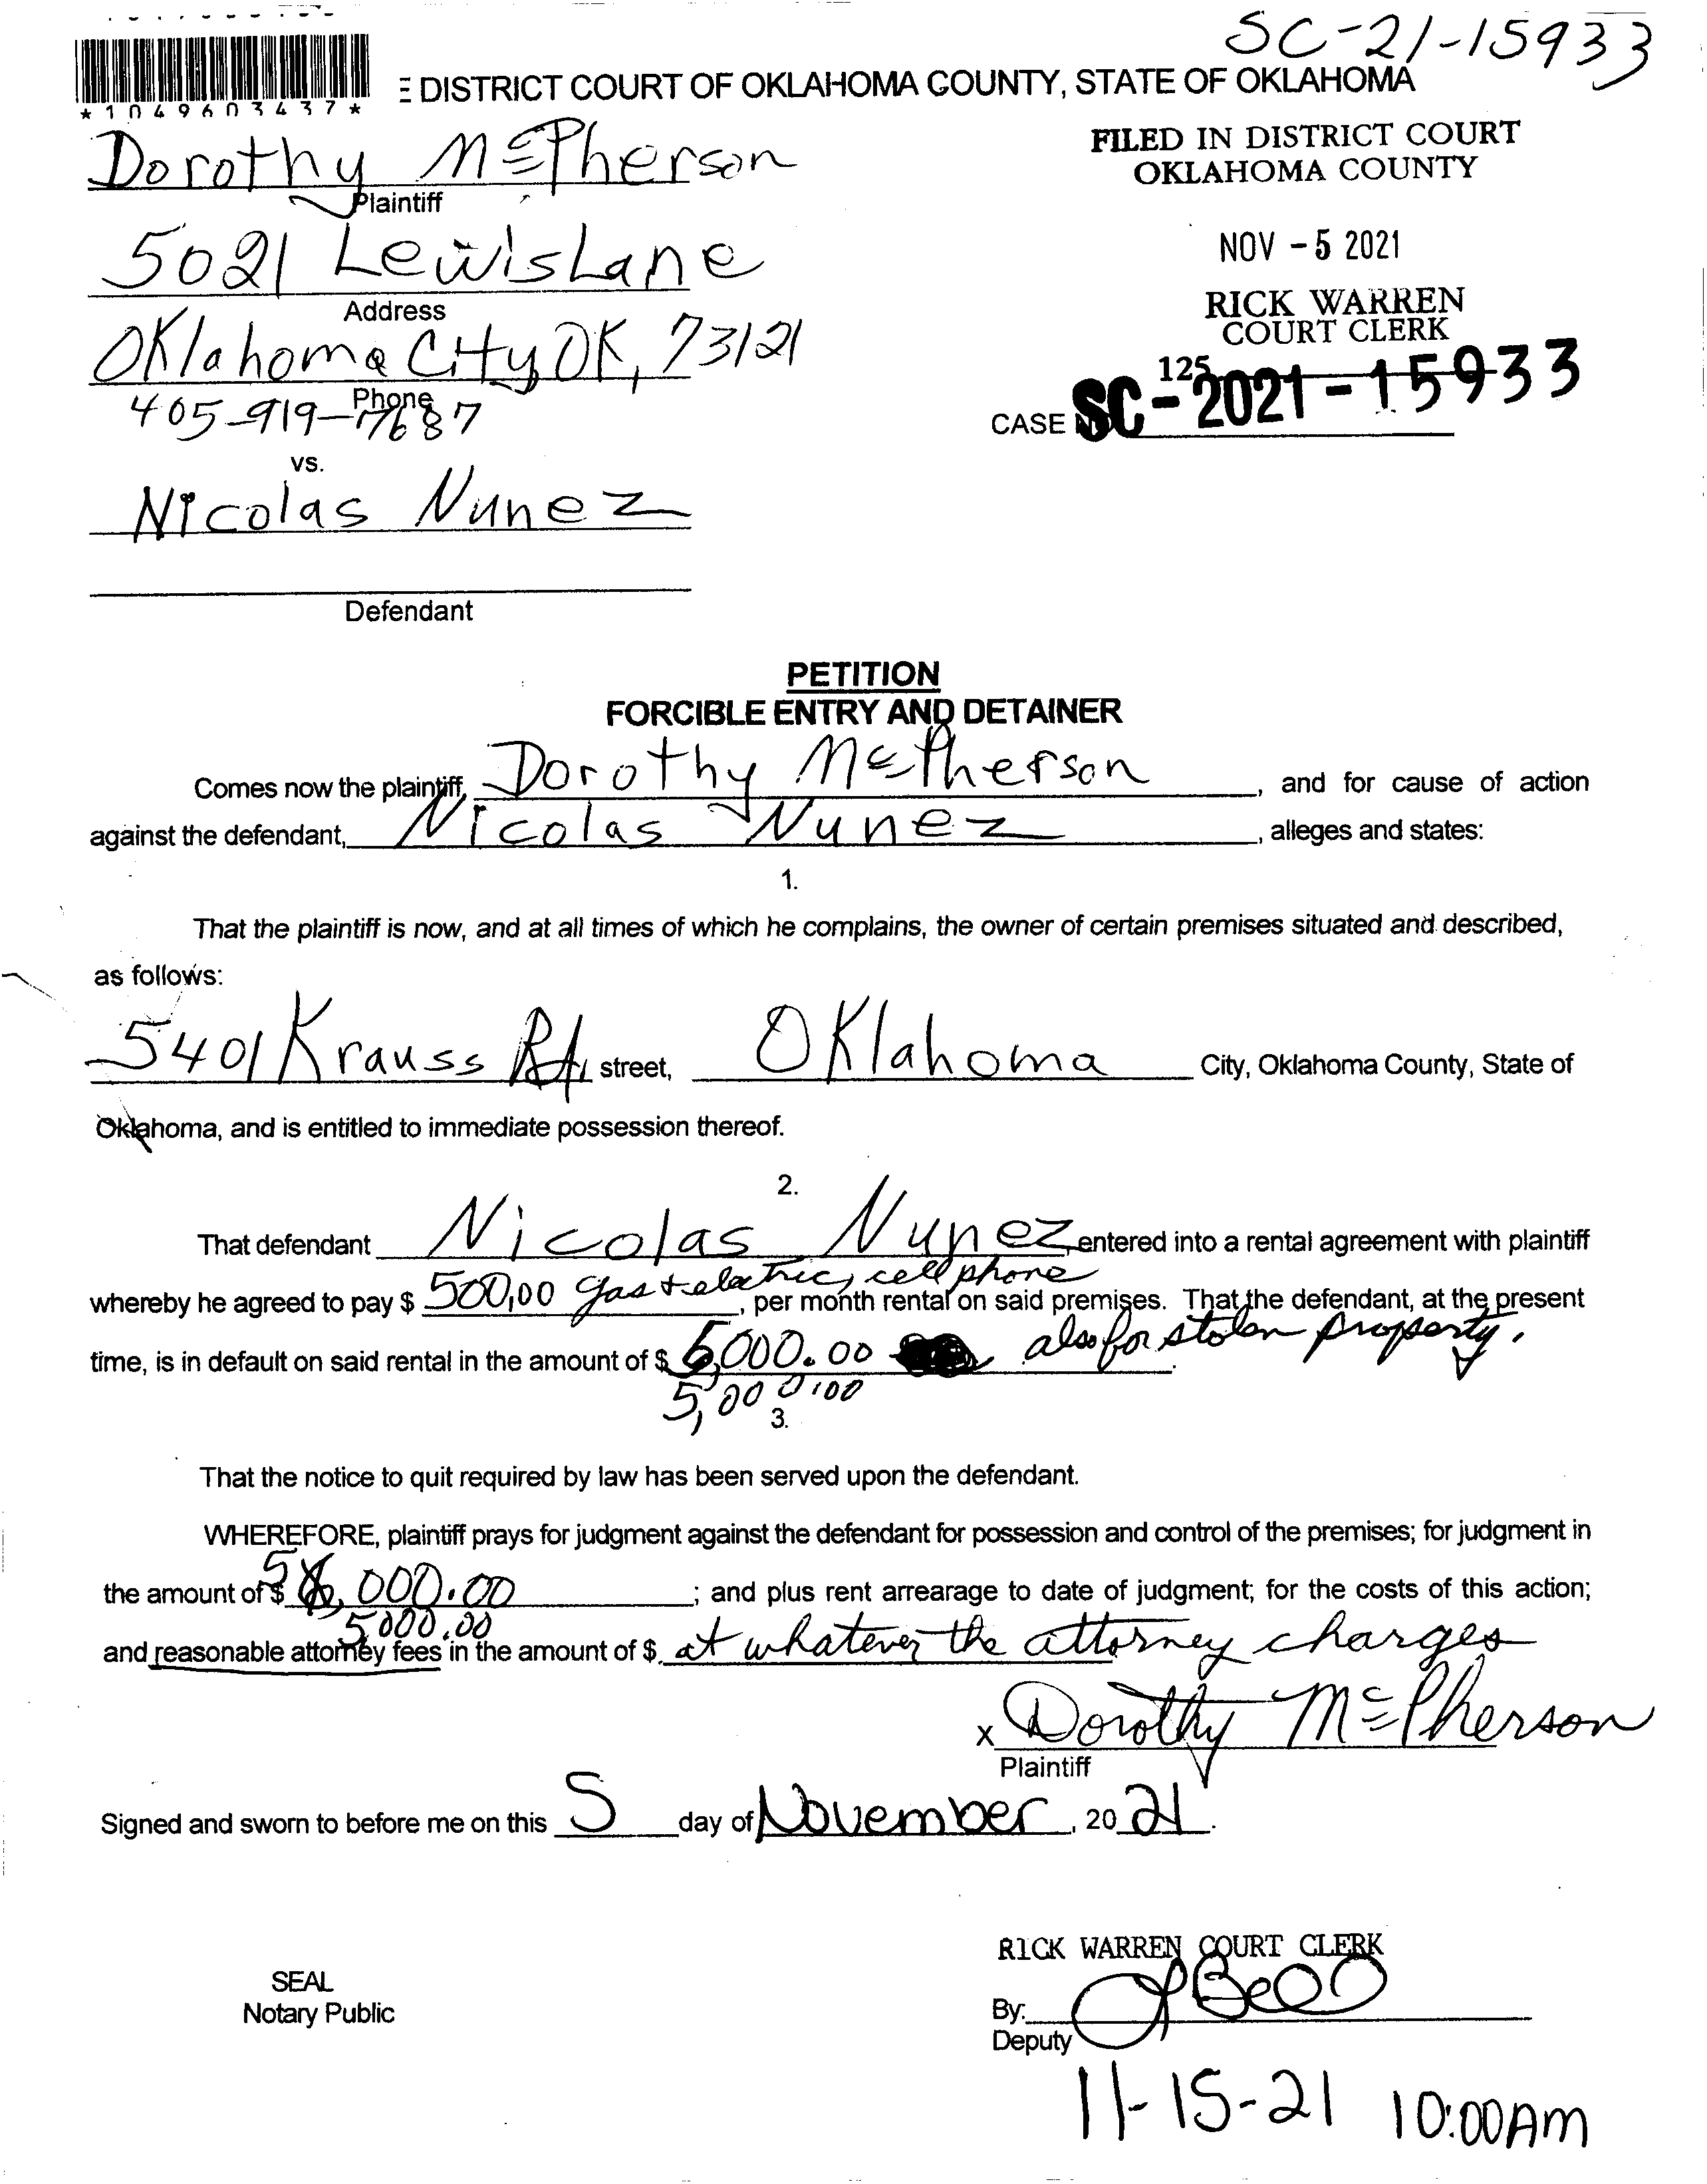 SC-21-15933
DISTRICT COURT OF OKLAHOMA COUNTY, STATE OF OKLAHOMA
*1049603437*
FILED IN DISTRICT COURT
OKLAHOMA COUNTY
Dorothy McPherson
Plaintiff
NOV - 5 2021
5021 Lewis Lane
Address
RICK WARREN
COURT CLERK
Oklahoma City OK, 73121
Phone
405-919-7687
125
CASE SC-2021-15933
vs.
Nicolas Nunez
Defendant
PETITION
FORCIBLE ENTRY AND DETAINER
Comes now the plaintiff, Dorothy McPherson, and for cause of action
against the defendant, Nicolas Nunez, alleges and states:
1.
That the plaintiff is now, and at all times of which he complains, the owner of certain premises situated and described,
as follows:
5401 Krauss Rd, street, Oklahoma City, Oklahoma County, State of
Oklahoma, and is entitled to immediate possession thereof.
2.
That defendant Nicolas Nunez entered into a rental agreement with plaintiff
whereby he agreed to pay $ 500,00 gas + electric, cell phone, per month rental on said premises. That the defendant, at the present
time, is in default on said rental in the amount of $ 5,000.00 also for stolen property.
5,000.00
3.
That the notice to quit required by law has been served upon the defendant.
WHEREFORE, plaintiff prays for judgment against the defendant for possession and control of the premises; for judgment in
the amount of $ 5,000.00; and plus rent arrearage to date of judgment; for the costs of this action;
5000.00
and reasonable attorney fees in the amount of $ at whatever the attorney charges
x Dorothy McPherson
Plaintiff
Signed and sworn to before me on this 5 day of November, 2021.
RICK WARREN COURT CLERK
SEAL
Notary Public
By:
Deputy
11-15-21 10:00AM